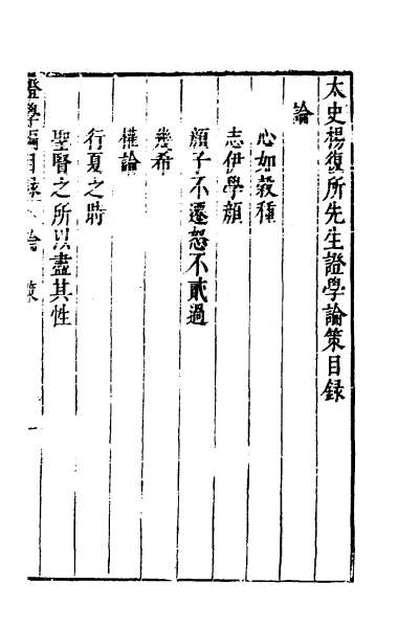 太史楊復所先生證學論策目録
論
心如穀種
志伊學顏
顏子不遷怒不貳過
幾希
權論
行夏之時
聖賢之所以盡其性
證學編目録 論 策 一